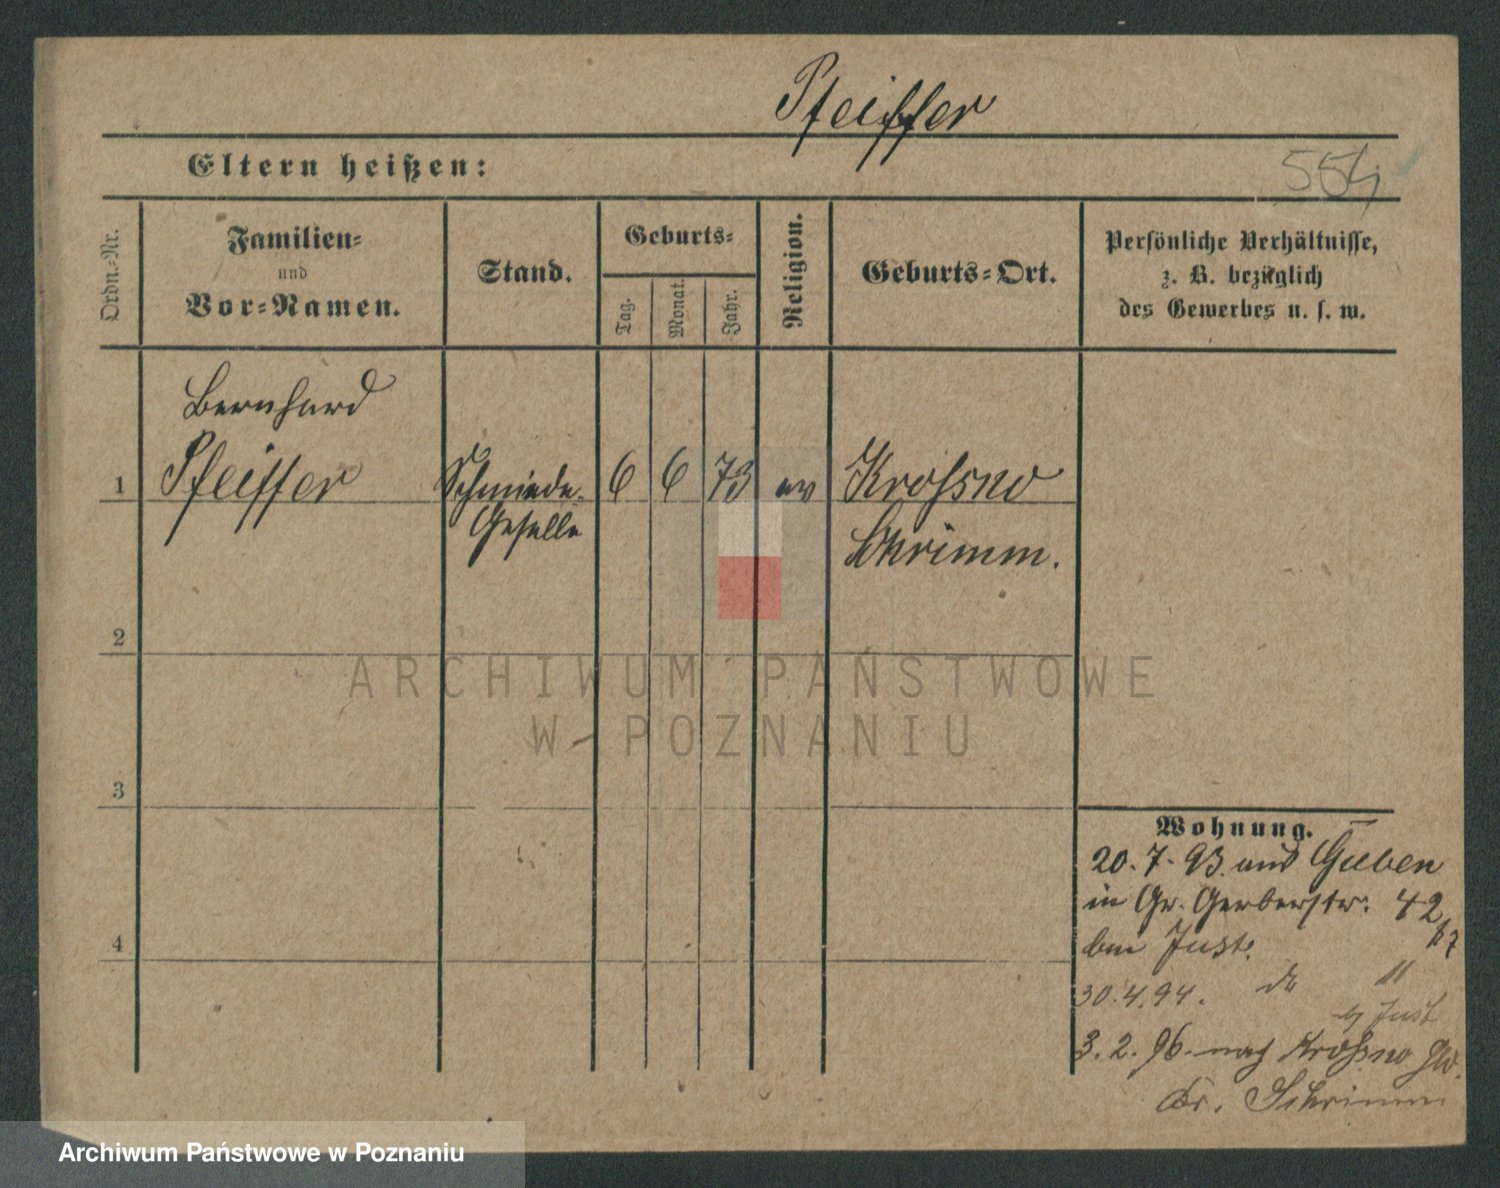 Pfeiffer
Eltern heißen:
554
Ordn.-Nr.
Familien-
und
Vor-Namen.
Stand.
Geburts-
Tag.
Monat.
Jahr.
Religion.
Geburts-Ort.
Persönliche Verhältnisse,
z. B. bezüglich
des Gewerbes u. s. w.
Bernhard
1 Pfeiffer Schmiede- 6 6 73 ev Krossno
Geselle Schrimm.
2
3
4
ARCHIWUM PAŃSTWOWE
W POZNANIU
Wohnung.
20.7.93. aus Guben
in Gr. Gerberstr. 42
bei Just.
30.4.94. do "
b/ Just
3.2.96. nach Krossno
Kr. Schrimm
Archiwum Państwowe w Poznaniu